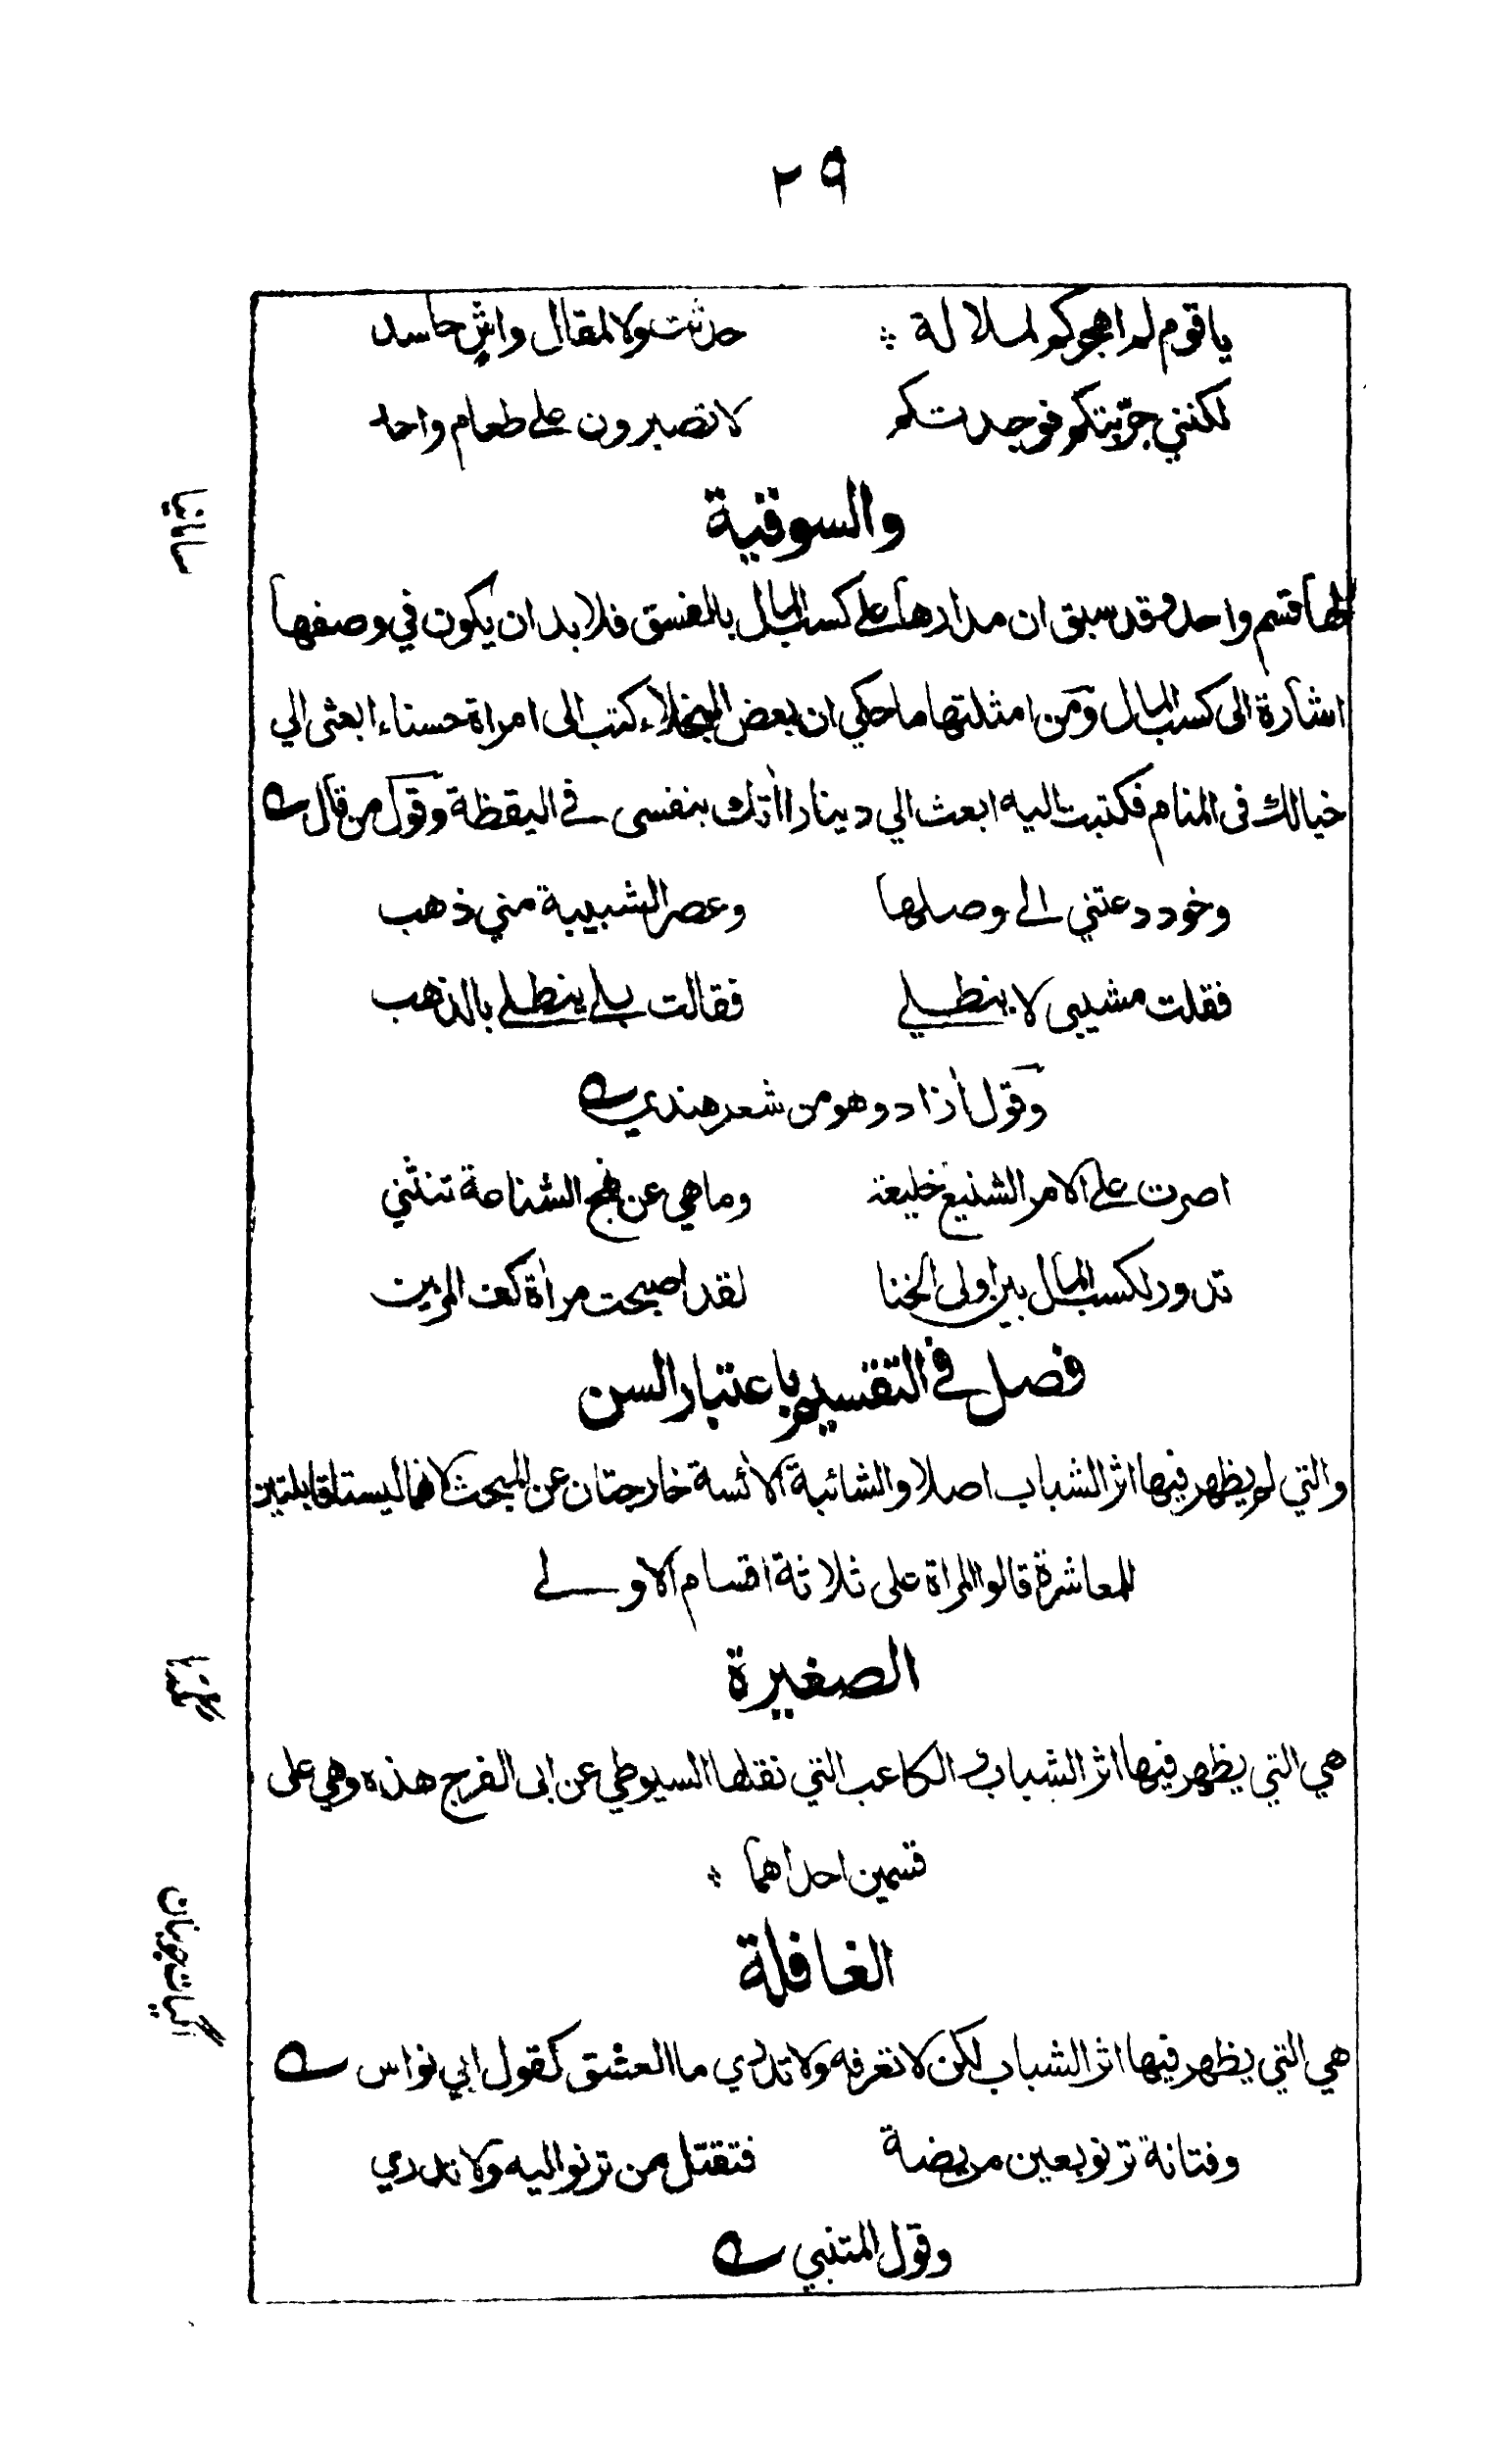 ٢٩
يا قوم لم اهجركم لملالة ؞ حدثت ولا لمقال واشٍ حاسد
لكنني جرّبتكم فوجدتكم لا تصبرون على طعام واحد
والسوقية
لها قسم واحد وقد سبق ان مدارها على كسب المال بالفسق فلا بد ان يكون في وصفها
اشارة الى كسب المال ومن امثلتها ما حكي ان بعض البخلاء كتب الى امراة حسناء ابعثى الي
خيالك فى المنام فكتبت اليه ابعث الي دينارا اٰتك بنفسى في اليقظة وقول من قال
وخود دعتني الى وصلها وعصر الشبيبة مني ذهب
فقلت مشيبى لا ينطلي فقالت بلى ينطلي بالذهب
وقول اٰزاد وهو من شعر هندي
اصرت على الامر الشنيع خليعة وما هي عن نهج الشناعة تنثني
تدور لكسب المال بين اولى الخنا لقد اصبحت مراٰة كف المزين
فصل في التقسيم باعتبار السن
والتي لم يظهر فيها اثر الشباب اصلا والشائبة الاٰئسة خارجتان عن المبحث لانهما ليستا قابلتين
للمعاشرة قالوا المراة على ثلاثة اقسام الاولى
الصغيرة
هي التي يظهر فيها اثر الشباب و الكاعب التي نقلها السيوطي عن ابى الفرج هذه وهي على
قسمين احداهما ؞
الغافلة
هي التي يظهر فيها اثر الشباب لكن لا تعرفه ولا تدري ما العشق كقول ابي نواس
وفتانة ترنو بعين مريضة فتقتل من ترنو اليه ولا تدري
وقول المتنبي